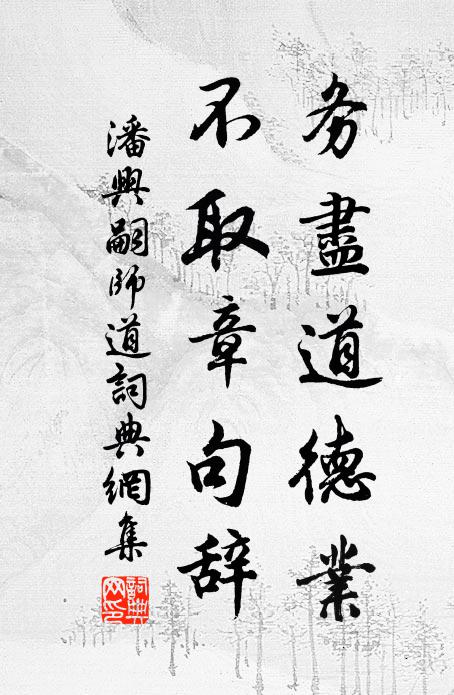 务盡道德業
不取章句辞
潘興嗣師道詞典網集
詞典网印